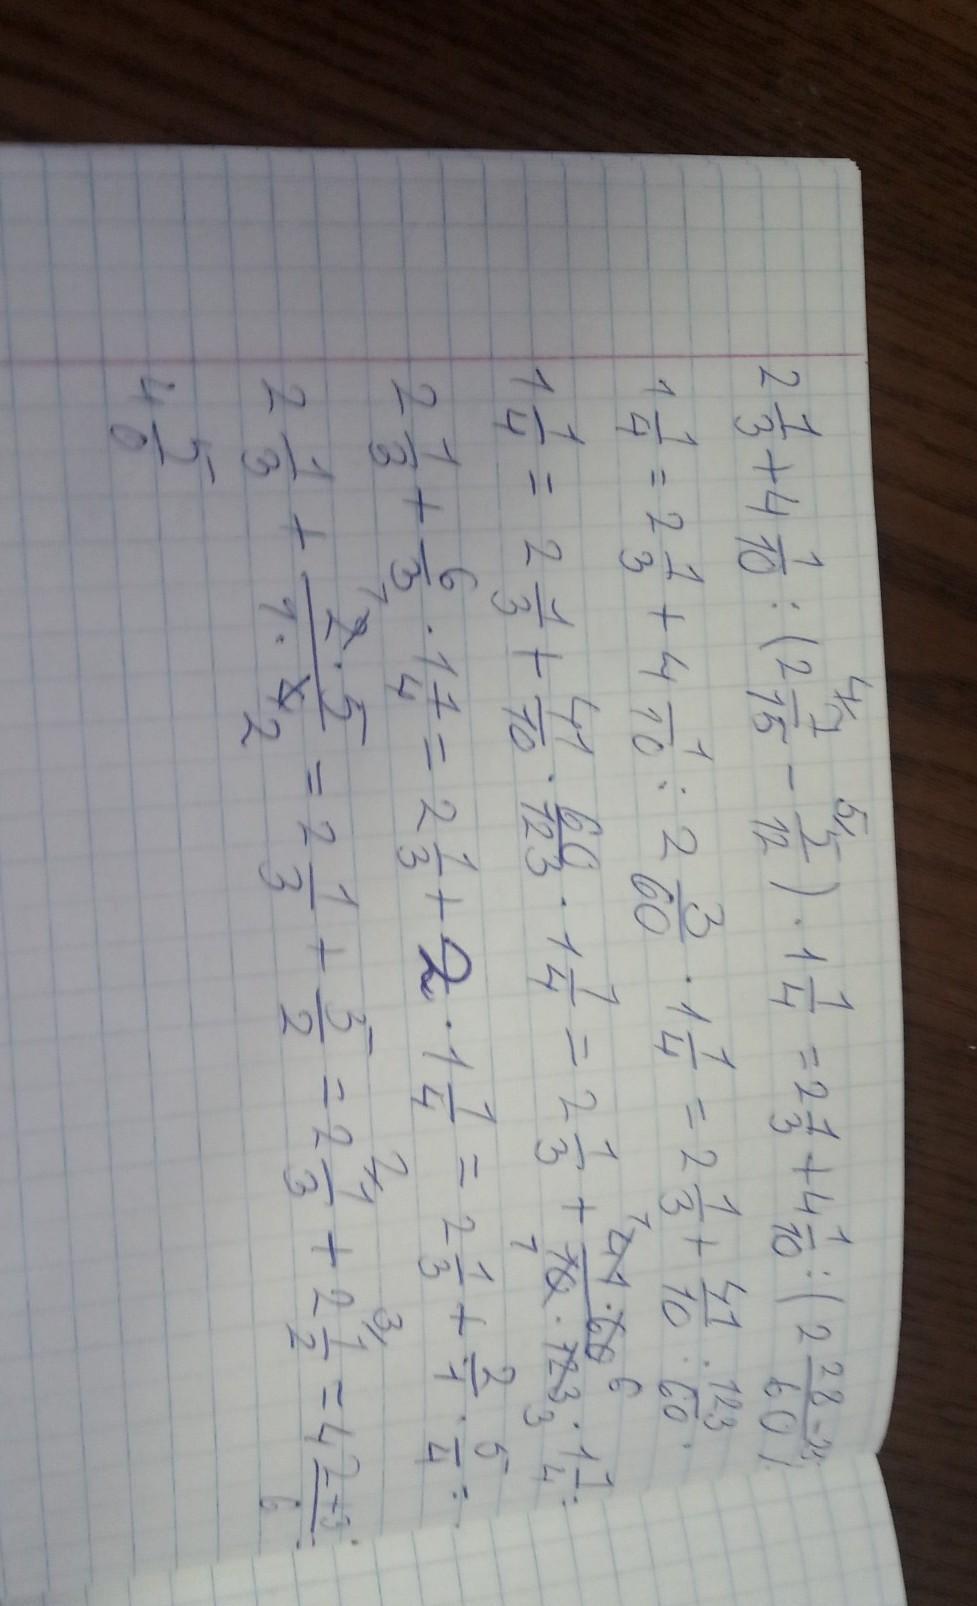 2 1/3 + 4 1/10 : (2 7/15 - 5/12) · 1 1/4 = 2 1/3 + 4 1/10 : (2 28-25/60) ·
1 1/4 = 2 1/3 + 4 1/10 : 2 3/60 · 1 1/4 = 2 1/3 + 41/10 : 123/60 ·
1 1/4 = 2 1/3 + 41/10 · 60/123 · 1 1/4 = 2 1/3 + 41·60/10·123 · 1 1/4 =
2 1/3 + 6/3 · 1 1/4 = 2 1/3 + 2 · 1 1/4 = 2 1/3 + 2/1 · 5/4 =
2 1/3 + 2·5/1·4 = 2 1/3 + 5/2 = 2 1/3 + 2 1/2 = 4 2+3/6 =
4 5/6